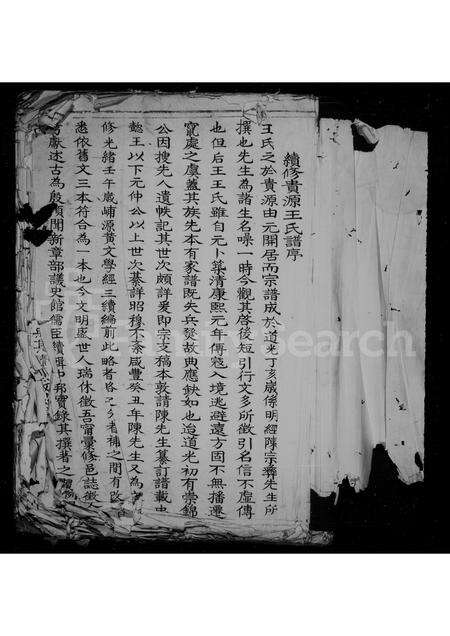 續修貴源王氏譜序
王氏之於貴源由元開居而宗譜成於道光丁亥歲係明經陳宗彝先生所
撰也先生為諸生名噪一時今觀其啓後短引行文多所徵引名信不虛傳
也但后王王氏雖自元卜築清康熙元年傳寇入境逃避遠方固不無播遷
竄處之虞蓋其族先本有家譜既失兵燹故典應缺如也迨道光初有崇錦
公因搜先人遺帙記其世次頗詳爰即宗支稿本敦請陳先生纂訂譜載中
懿王以下元仲公以上世次綦詳昭穆不紊咸豐癸丑年陳先生又為
修光緒壬午歲峬源黃文學經三續編前此略者
悉依舊文三本符合為一本也今文明盛世人瑞休徵吾甯曼修邑誌徵人
考獻述古為殷頃聞新章部議史館儒臣續
FamilySearch